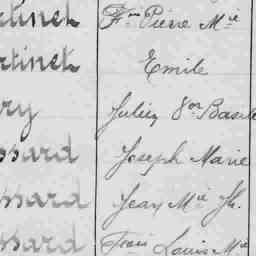 rtinet Fois Pierre Mie
rtinet Emile
ry Julien Vor Basile
ssard Joseph Marie
ssard Jean Mie Fs.
ssard Fois Louis Mie